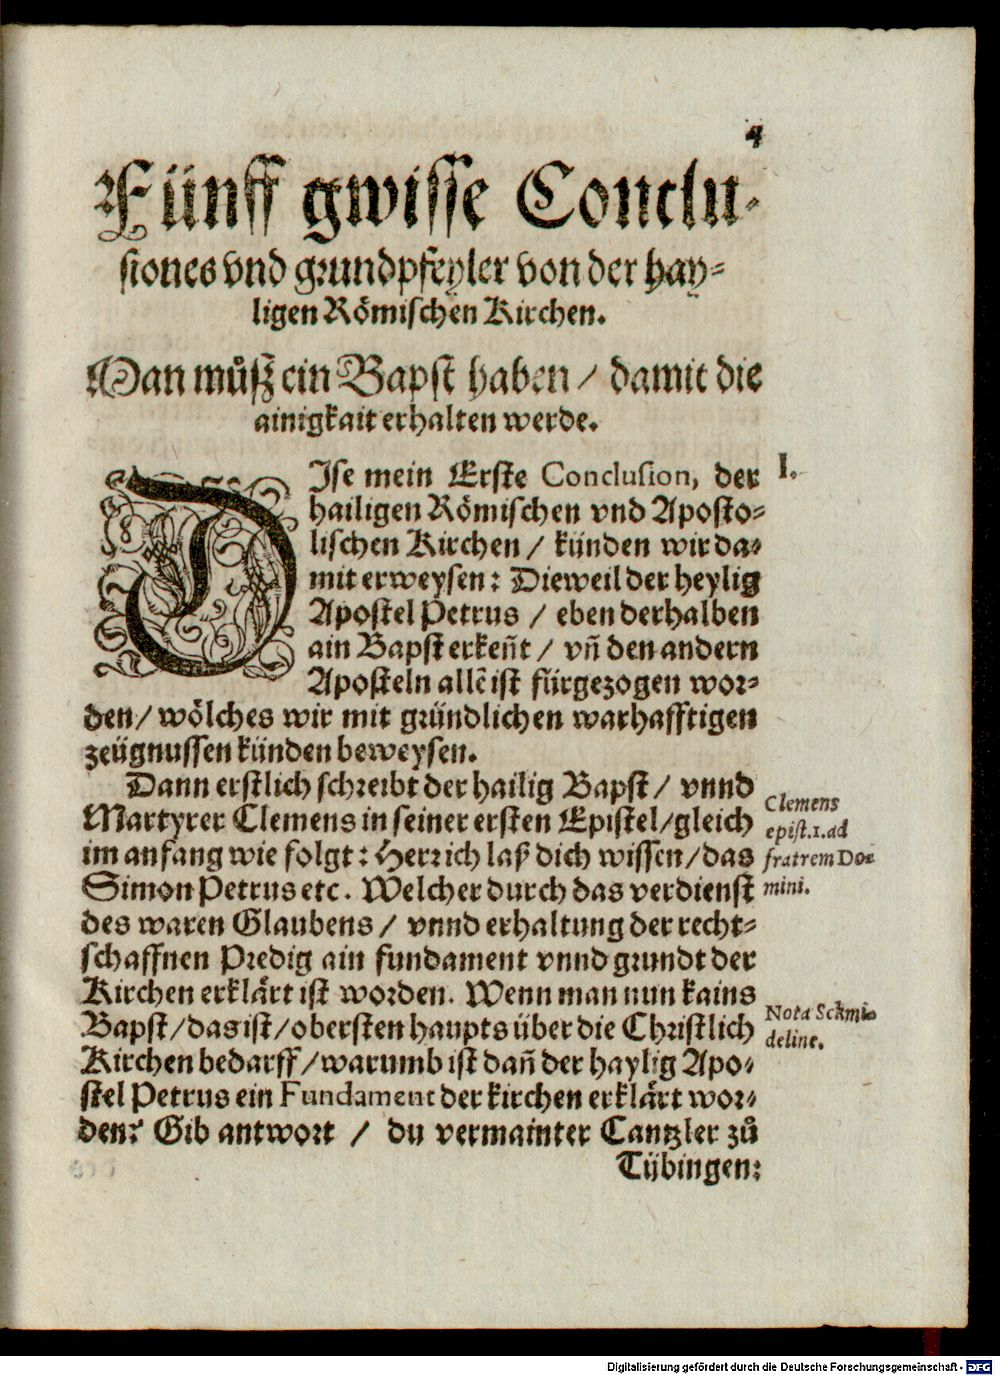 4
Fünff gwisse Conclu-
siones vnd grundpfeyler von der hay-
ligen Römischen Kirchen.
Man muͦß ein Bapst haben / damit die
ainigkait erhalten werde.
DIse mein Erste Conclusion, der
I.
hailigen Römischen vnd Aposto-
lischen Kirchen / künden wir da-
mit erweysen: Dieweil der heylig
Apostel Petrus / eben derhalben
ain Bapst erkeñt / vñ den andern
Aposteln allẽ ist fürgezogen wor-
den / wölches wir mit gründlichen warhafftigen
zeügnussen künden beweysen.
Dann erstlich schreibt der hailig Bapst / vnnd
Martyrer Clemens in seiner ersten Epistel / gleich
im anfang wie folgt: Herr ich laß dich wissen / das
Simon Petrus etc. Welcher durch das verdienst
des waren Glaubens / vnnd erhaltung der recht-
schaffnen Predig ain fundament vnnd grundt der
Kirchen erklärt ist worden. Wenn man nun kains
Bapst / das ist / obersten haupts über die Christlich
Kirchen bedarff / warumb ist dañ der haylig Apo-
stel Petrus ein Fundament der kirchen erklärt wor-
den? Gib antwort / du vermainter Cantzler zuͦ
Tübingen:
Clemens
epist. 1. ad
fratrem Do-
mini.
Nota Schmi-
deline.
Digitalisierung gefördert durch die Deutsche Forschungsgemeinschaft - DFG